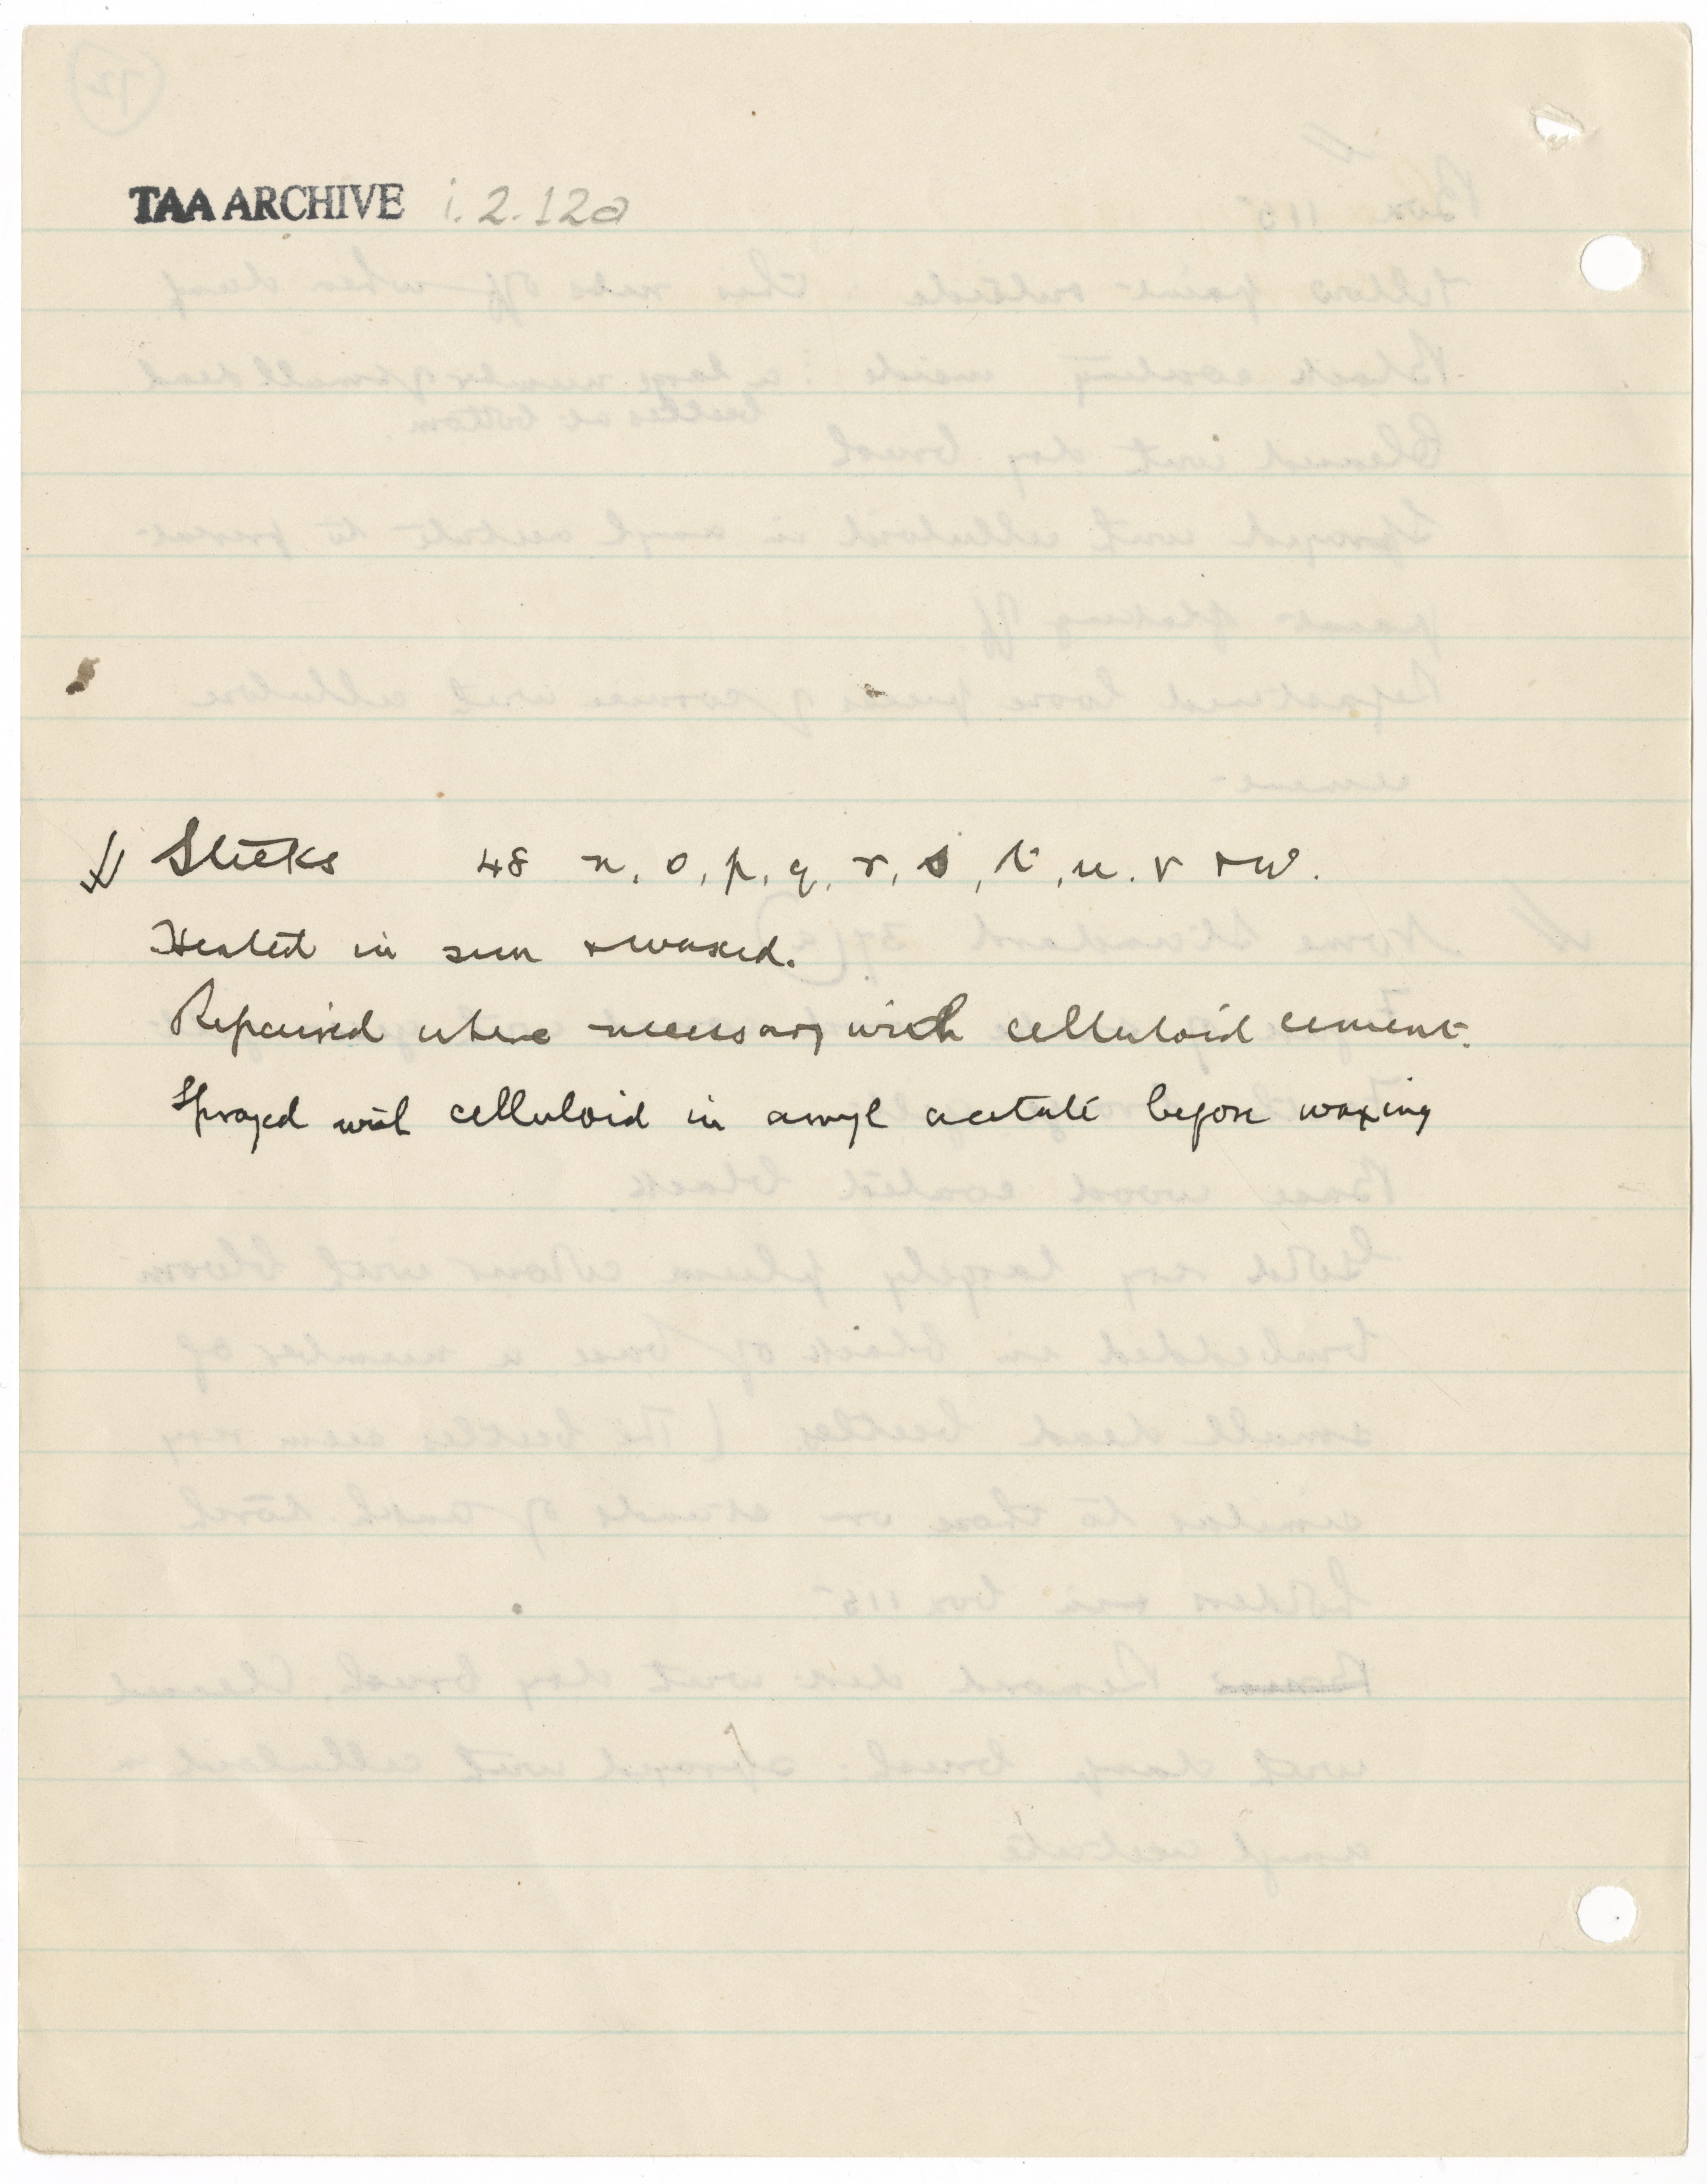 TAA ARCHIVE i.2.12a
Sticks 48 n, o, p, q, r, s, t, u. v + w.
Heated in sun + waxed.
Repaired where necessary with celluloid cement.
Sprayed with celluloid in amyl acetate before waxing